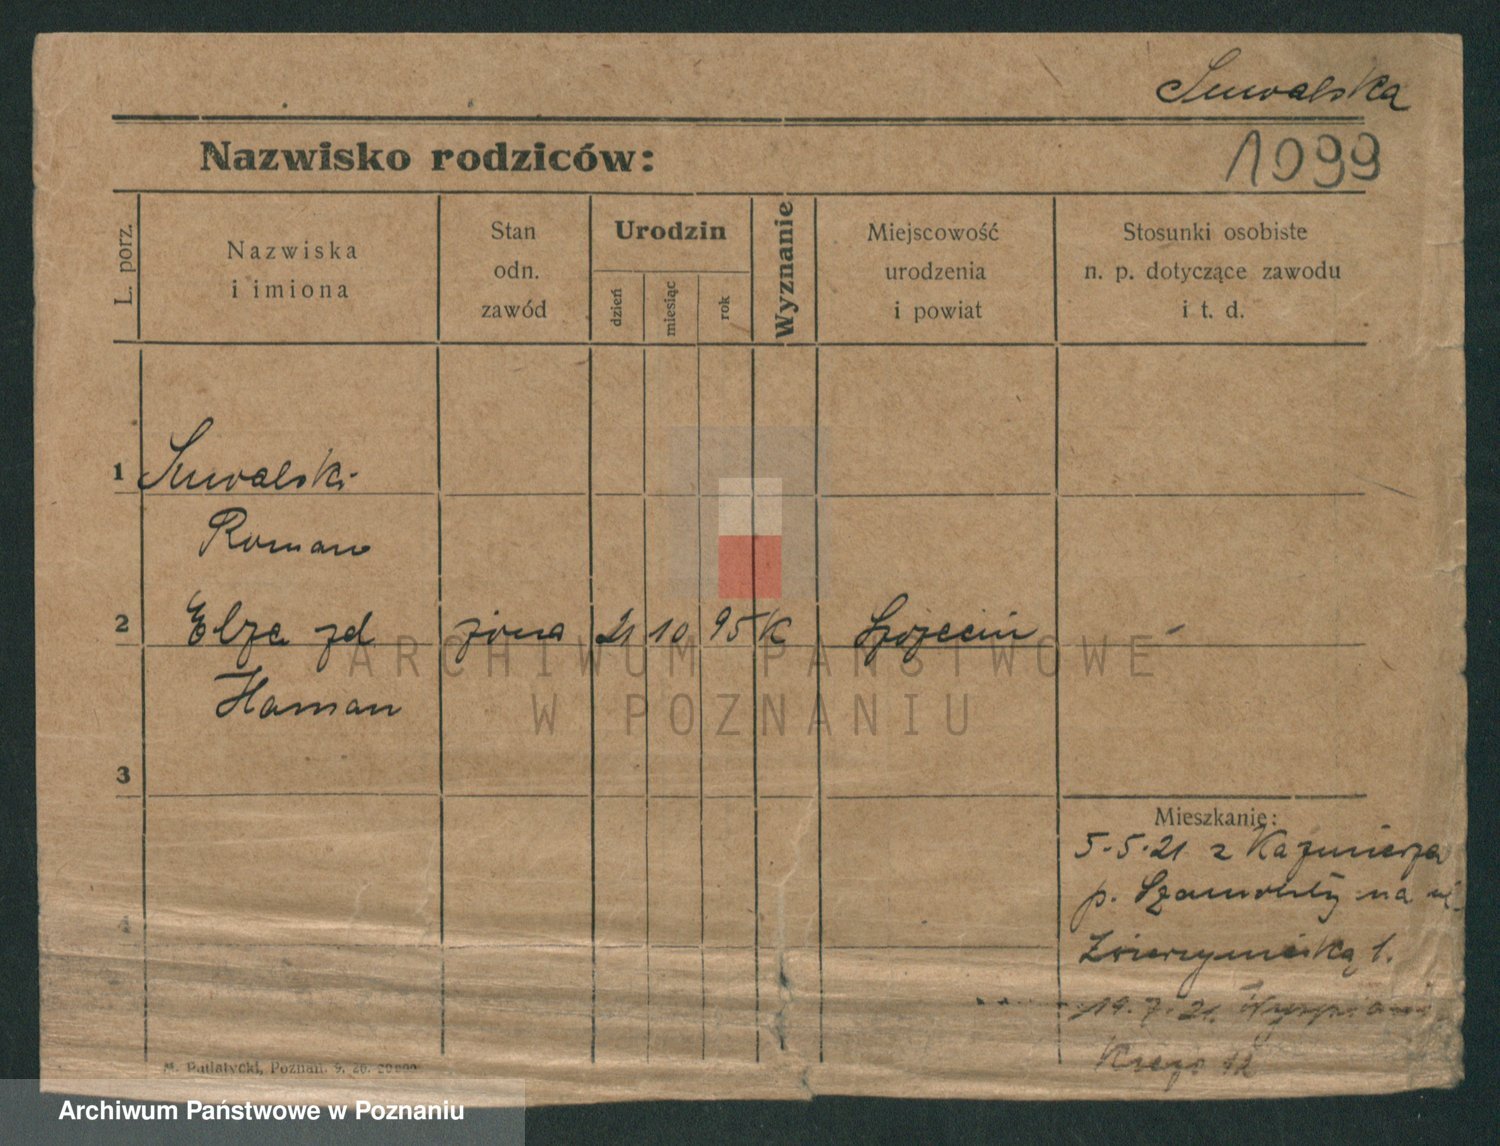 Suwalska
1099
Nazwisko rodziców:
L. porz.
Nazwiska
i imiona
Stan
odn.
zawód
Urodzin
dzień
miesiąc
rok
Wyznanie
Miejscowość
urodzenia
i powiat
Stosunki osobiste
n. p. dotyczące zawodu
i t. d.
1 Suwalski
Roman
2 Elza zd żona 21 10 95 K Szczecin -
Haman
3
Mieszkanie:
5.5.21 z Kazmierza
p. Szamotuły na ul.
Zwierzyniecką 1.
4
19.7.21. Wyspiań
12
Poznań. 9. 20. 20000
ARCHIWUM PAŃSTWOWE
W POZNANIU
Archiwum Państwowe w Poznaniu